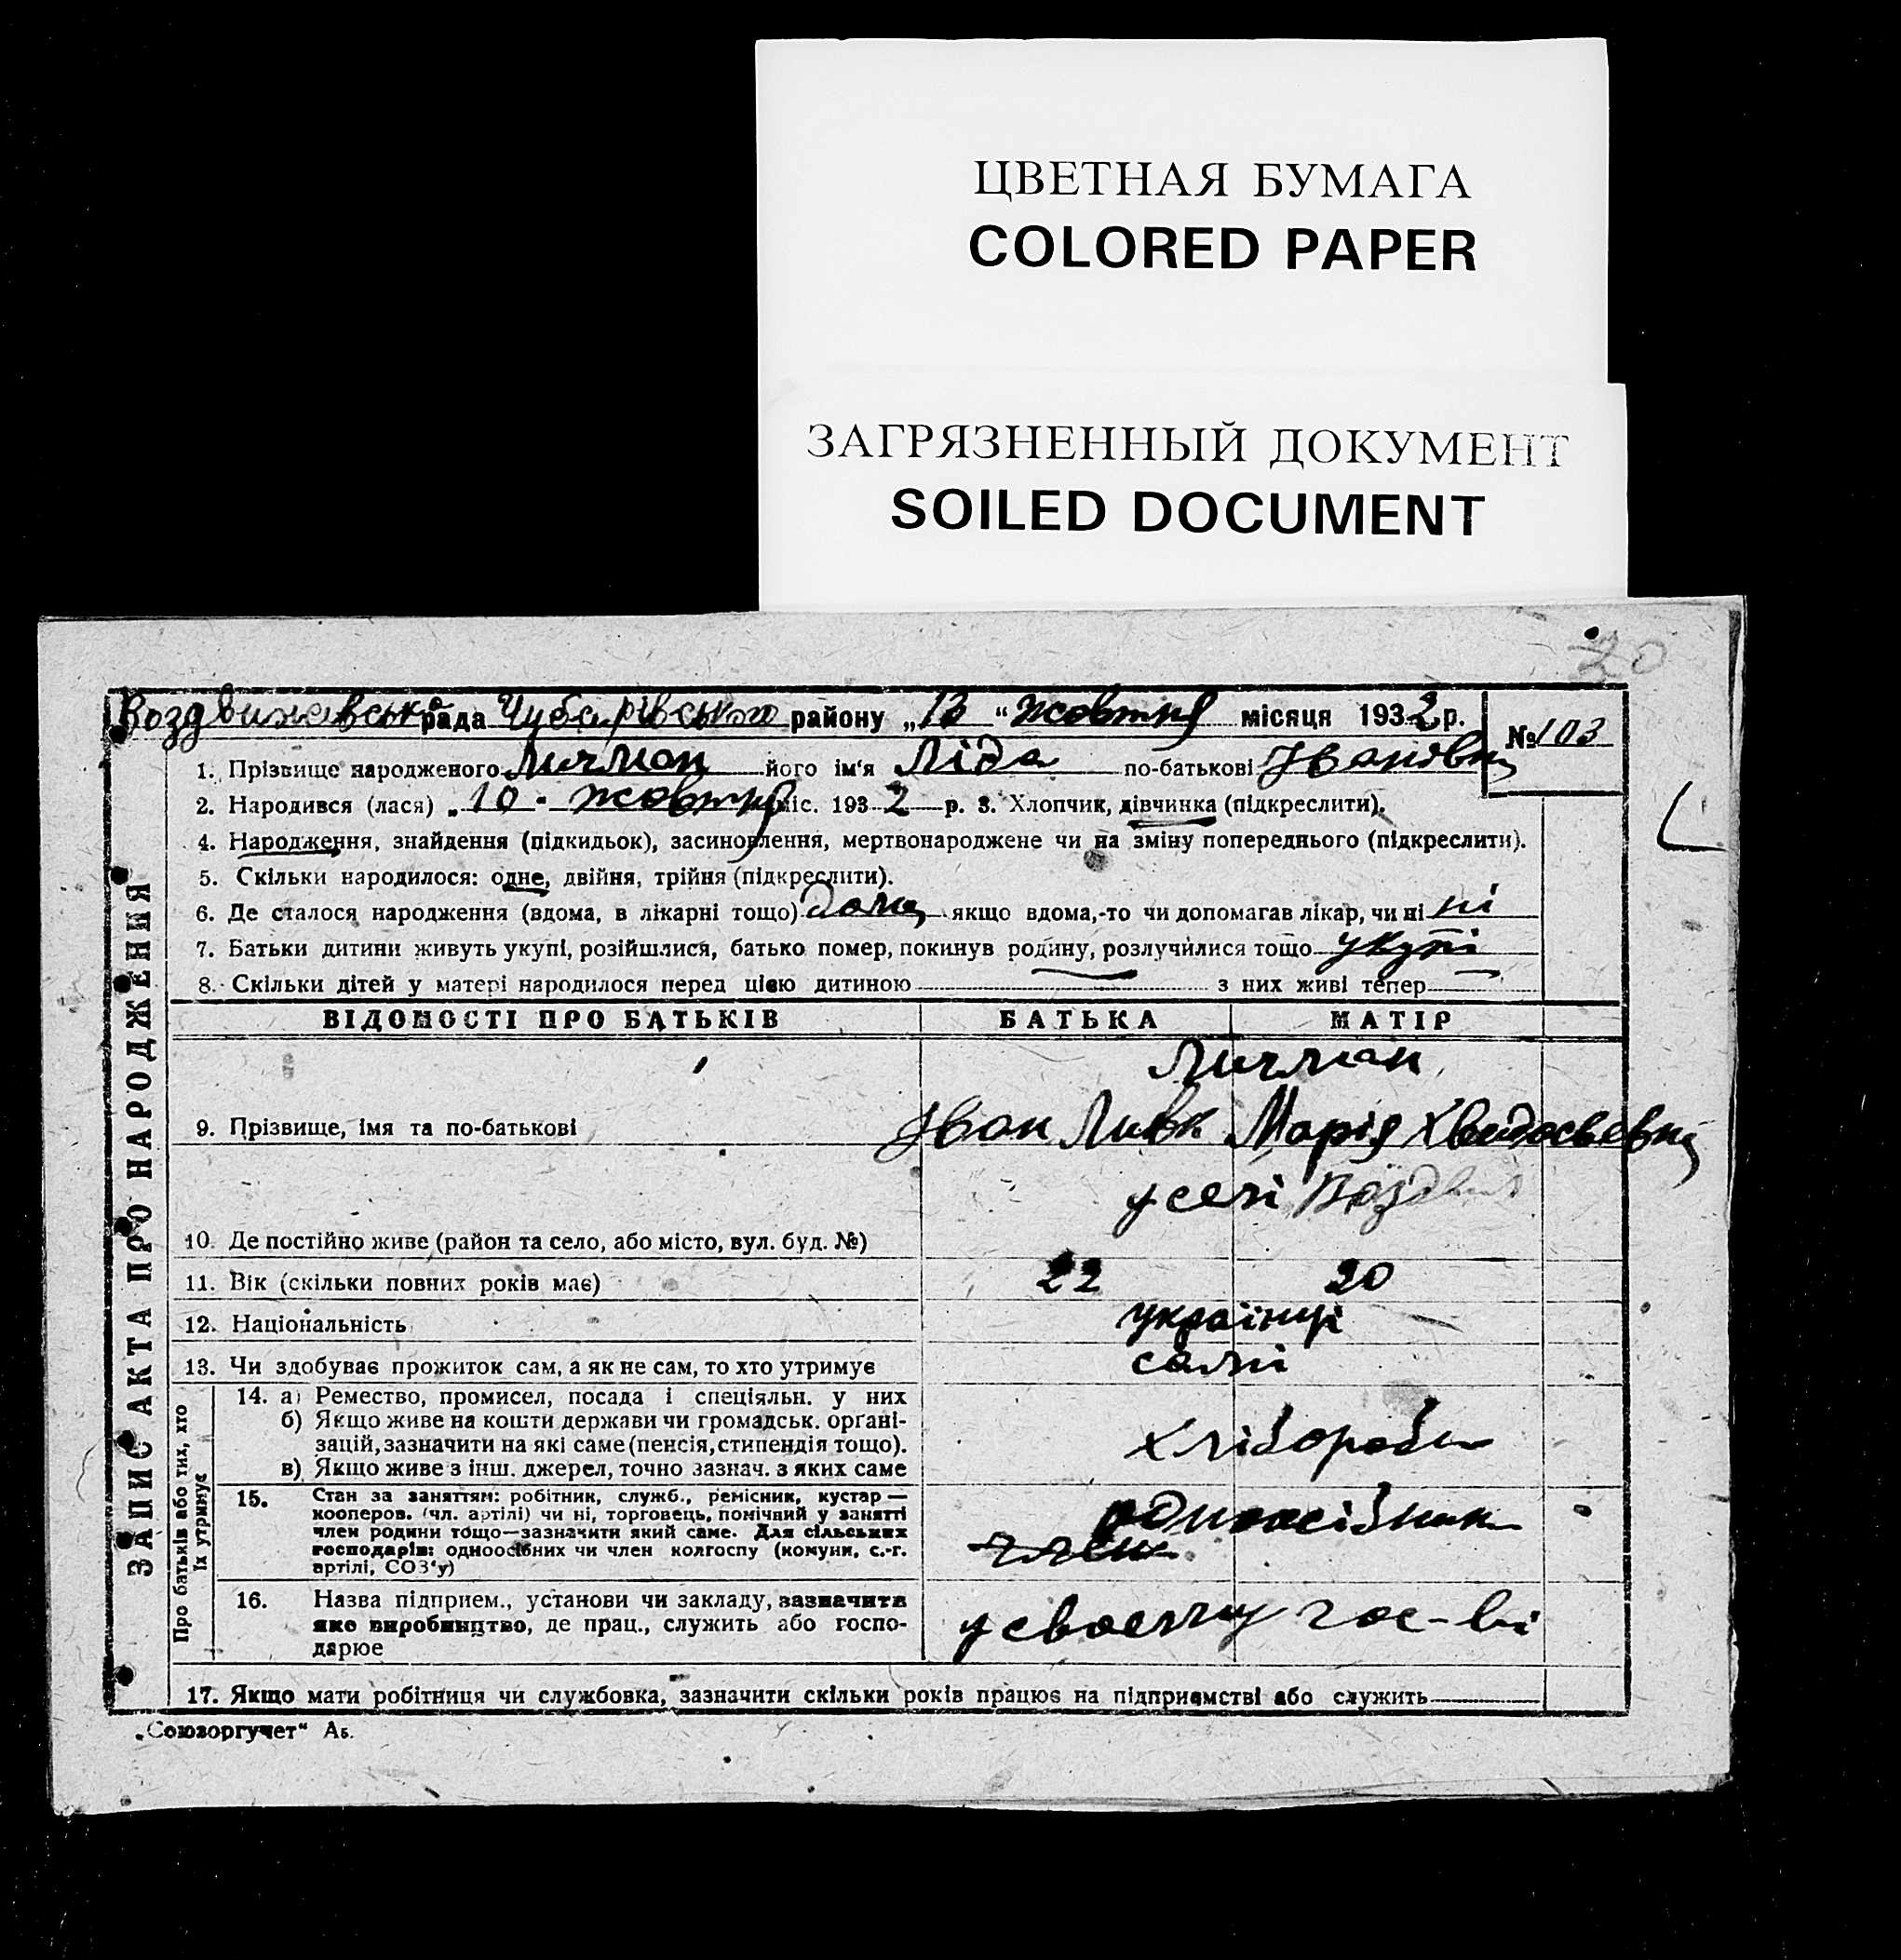 ЦВЕТНАЯ БУМАГА
COLORED PAPER
ЗАГРЯЗНЕННЫЙ ДОКУМЕНТ
SOILED DOCUMENT
20
Воздвижавська рада Чубарівського району „13“ жовтня місяця 1932 р.
№ 103
1. Прізвище народженого Личман його ім'я Ліда по-батькові Івановна
2. Народився (лася) „10" жовтня міс. 1932 р. 3. Хлопчик, дівчинка (підкреслити).
4. Народження, знайдення (підкидьок), засиновлення, мертвонароджене чи на зміну попереднього (підкреслити).
5. Скільки народилося: одне, двійня, трійня (підкреслити).
6. Де сталося народження (вдома, в лікарні тощо) дома якщо вдома,-то чи допомагав лікар, чи ні ні
7. Батьки дитини живуть укупі, розійшлися, батько помер, покинув родину, розлучилися тощо укупі
8. Скільки дітей у матері народилося перед цією дитиною — з них живі тепер —
ЗАПИС АКТА ПРО НАРОДЖЕННЯ
ВІДОМОСТІ ПРО БАТЬКІВ БАТЬКА МАТІР
Личман
9. Прізвище, імя та по-батькові Іван Марія
у селі
10. Де постійно живе (район та село, або місто, вул. буд. №)
11. Вік (скільки повних років має) 22 20
12. Національність українці
13. Чи здобуває прожиток сам, а як не сам, то хто утримує самі
Про батьків або тих, хто їх утримує
14. а) Ремество, промисел, посада і спеціяльн. у них
б) Якщо живе на кошти держави чи громадськ. орґані-
зацій, зазначити на які саме (пенсія, стипендія тощо). хлібороби
в) Якщо живе з інш. джерел, точно зазнач. з яких саме
15. Стан за заняттям: робітник, служб., ремісник, кустар —
кооперов. (чл. артілі) чи ні, торговець, помічний у занятті одноосібники
член родини тощо—зазначити який саме. Для сільських
господарів: одноосібних чи член колгоспу (комуни, с.-г. член
артілі, СОЗ'у)
16. Назва підприєм., установи чи закладу, зазначити
яке виробництво, де прац., служить або госпо- у своєму гос-ві
дарює
17. Якщо мати робітниця чи службовка, зазначити скільки років працює на підприємстві або служить
„Союзоргучет“ Аб.